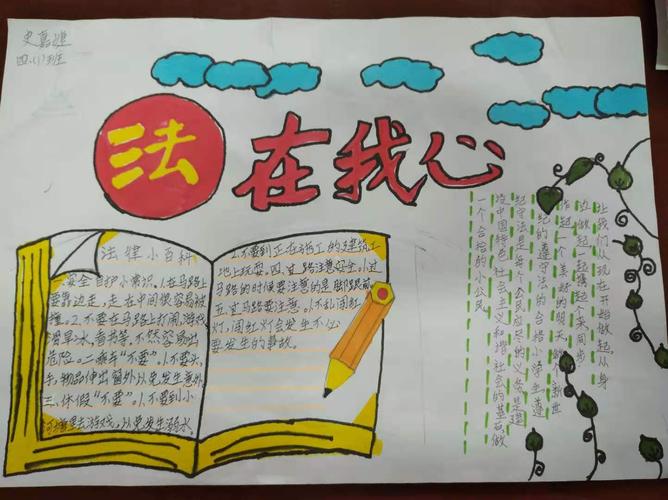 史嘉
四.(1)班
法在我心
法律小百科
一.安全自护小常识.1.在马路上
要靠边走,走在中间很容易被
撞。2.不要在马路上打闹,游戏
滑旱冰,看书等,不然容易出
危险。二.乘车"不要".1.不要头,
手,物品伸出窗外以免发生意外
三.休假"不要".1.不要到小
河塘里去游戏,以免发生溺水.
2.不要到正在施工的建筑工
地上玩耍.四.过路注意安全.1.过
马路的时候要注意的是脚跟前
五.过马路要注意.1.不乱闯红
灯,闯红灯会发生不必
要发生的事故。
让我们从现在开始做起,从身
边做起一起携起个来同步
作起一个美好的明天做个新世
纪的遵守法的合格小学生遵
纪守法是每个公民应尽的义务是建
设中国特色社会主义和谐社会的基石,做
一个合格的小公民